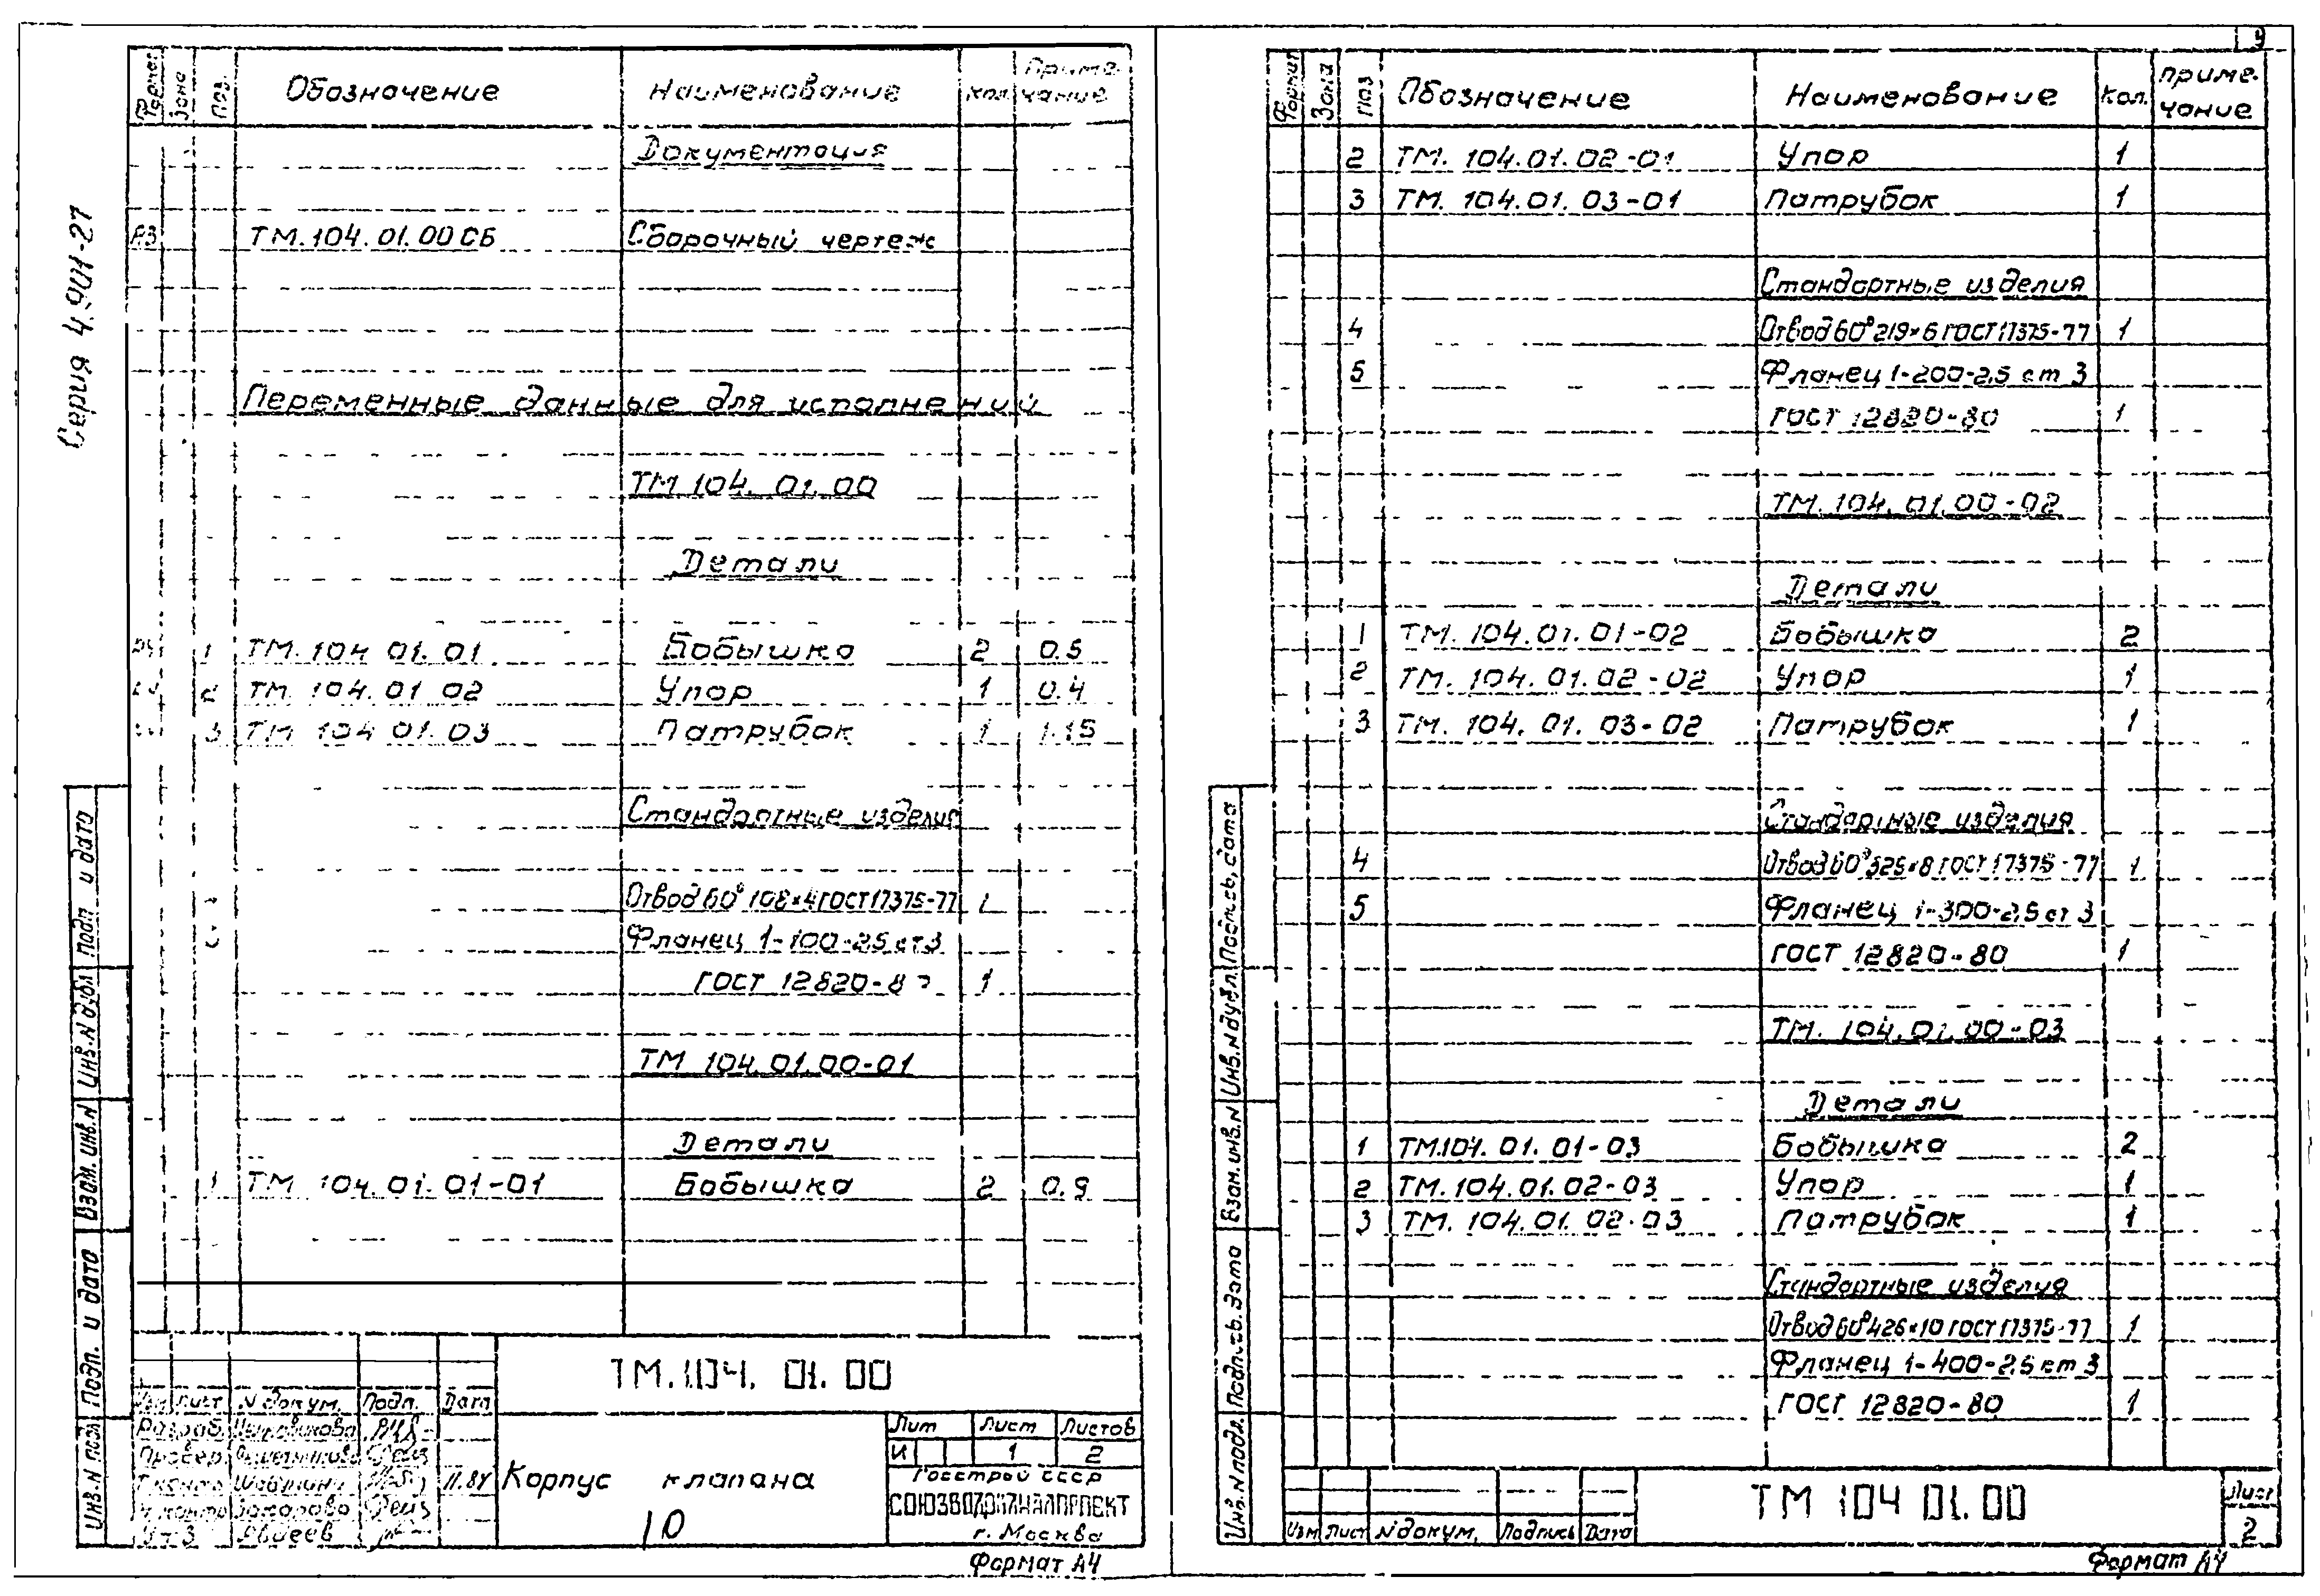 Серия 4.901-27
Формат Зона Поз. Обозначение Наименование Кол. Приме-чание
Документация
А3 ТМ.104.01.00 СБ Сборочный чертеж
Переменные данные для исполнений
ТМ 104.01.00
Детали
1 ТМ.104 01.01 Бобышка 2 0.5
2 ТМ. 104.01 02 Упор 1 0.4
3 ТМ 104 01.03 Патрубок 1 1.15
Стандартные изделия
Отвод 60° 108×4 ГОСТ 17375-77 1
Фланец 1-100-2,5 ст3
ГОСТ 12820-8 1
ТМ 104.01.00-01
Детали
1 ТМ 104.01.01-01 Бобышка 2 0.9
Инв. N подл. Подп. и дата Взам. инв. N Инв. N дубл Подп и дата
ТМ.104. 01. 00
Изм Лист N докум. Подп. Дата
Разраб.
Провер.
11.84
Захарова
Авдеев
Корпус клапана
10
Лит Лист Листов
И 1 2
Госстрой СССР
СОЮЗВОДОКАНАЛПРОЕКТ
г. Москва
Формат А4
9
Формат Зона Поз Обозначение Наименование Кол. Приме-чание
2 ТМ. 104.01.02-01 Упор 1
3 ТМ. 104.01.03-01 Патрубок 1
Стандартные изделия
4 Отвод 60° 219×6 ГОСТ 17375-77 1
5 Фланец 1-200-2,5 ст 3
ГОСТ 12820-80 1
ТМ. 104. 01.00-02
Детали
1 ТМ. 104.01.01-02 Бобышка 2
2 ТМ. 104.01.02-02 Упор 1
3 ТМ. 104.01.03-02 Патрубок 1
Стандартные изделия
4 Отвод 60° 325×8 ГОСТ 17375-77 1
5 Фланец 1-300-2,5 ст 3
ГОСТ 12820-80 1
ТМ. 104.01.00-03
Детали
1 ТМ.104.01.01-03 Бобышка 2
2 ТМ.104.01.02-03 Упор 1
3 ТМ. 104.01.02-03 Патрубок 1
Стандартные изделия
Отвод 60° 426×10 ГОСТ 17375-77 1
Фланец 1-400-2,5 ст 3
ГОСТ 12820-80 1
Инв. N подл. Подпись. дата Взам. инв. N Инв. N дубл. Подпись, дата
Изм Лист N докум. Подпись Дата
ТМ 104 01.00
Лист
2
Формат А4